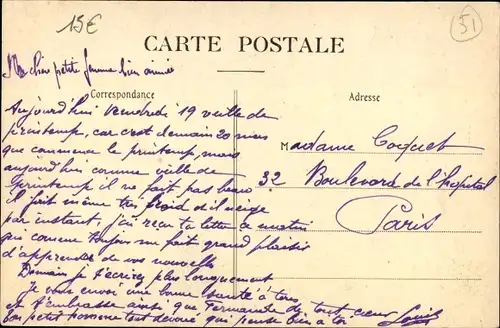 15€
51
CARTE POSTALE
Ma chère petite femme bien aimée
Correspondance
Adresse
Aujourd'hui Vendredi 19 veille de
printemp, car c'est demain 20 mars
que commence le printemp, mais
aujourd'hui comme veille de
printemp il ne fait pas beau
il fait même très froid il neige
par instant, j'ai reçu ta lettre ce matin
qui comme toujour me fait grand plaisir
d'apprendre de vos nouvelles
Demain je t'écrirez plus longuement
Je vous envoi une bonne santé à tous
et t'embrasse ainsi que Germaine de tout cœur
ton petit homme tout dévoué qui pense bien à toi Louis
Madame Coquet
32 Boulevard de l'hopital
Paris